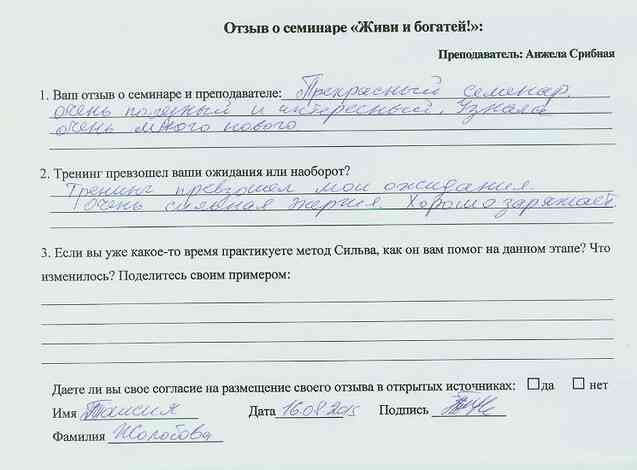 Отзыв о семинаре «Живи и богатей!»:
Преподаватель: Анжела Срибная
1. Ваш отзыв о семинаре и преподавателе: Прекрасный семенар,
очень полезный и интересный. Узнала
очень много нового
2. Тренинг превзошел ваши ожидания или наоборот?
Тренинг превзошел мои ожидания.
Очень сильная энергия. Хорошо заряжает
3. Если вы уже какое-то время практикуете метод Сильва, как он вам помог на данном этапе? Что
изменилось? Поделитесь своим примером:
Даете ли вы свое согласие на размещение своего отзыва в открытых источниках: да нет
Имя Таисия Дата 16.08.2015 Подпись
Фамилия Жолобова